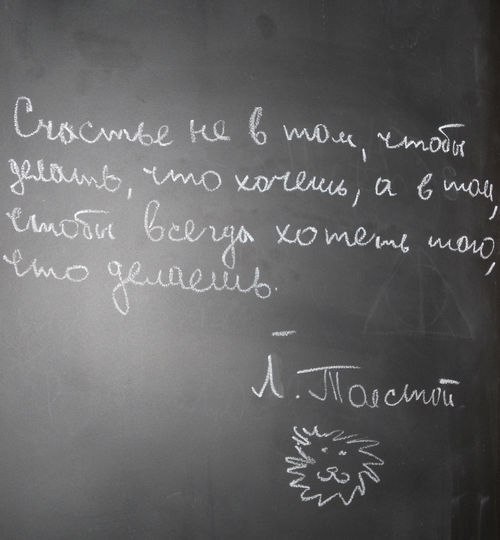 Счастье не в том, чтобы
делать, что хочешь, а в том,
чтобы всегда хотеть того,
что делаешь.
Л. Толстой